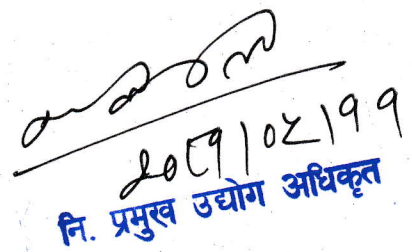 २०८१।०८।११
नि. प्रमुख उद्योग अधिकृत